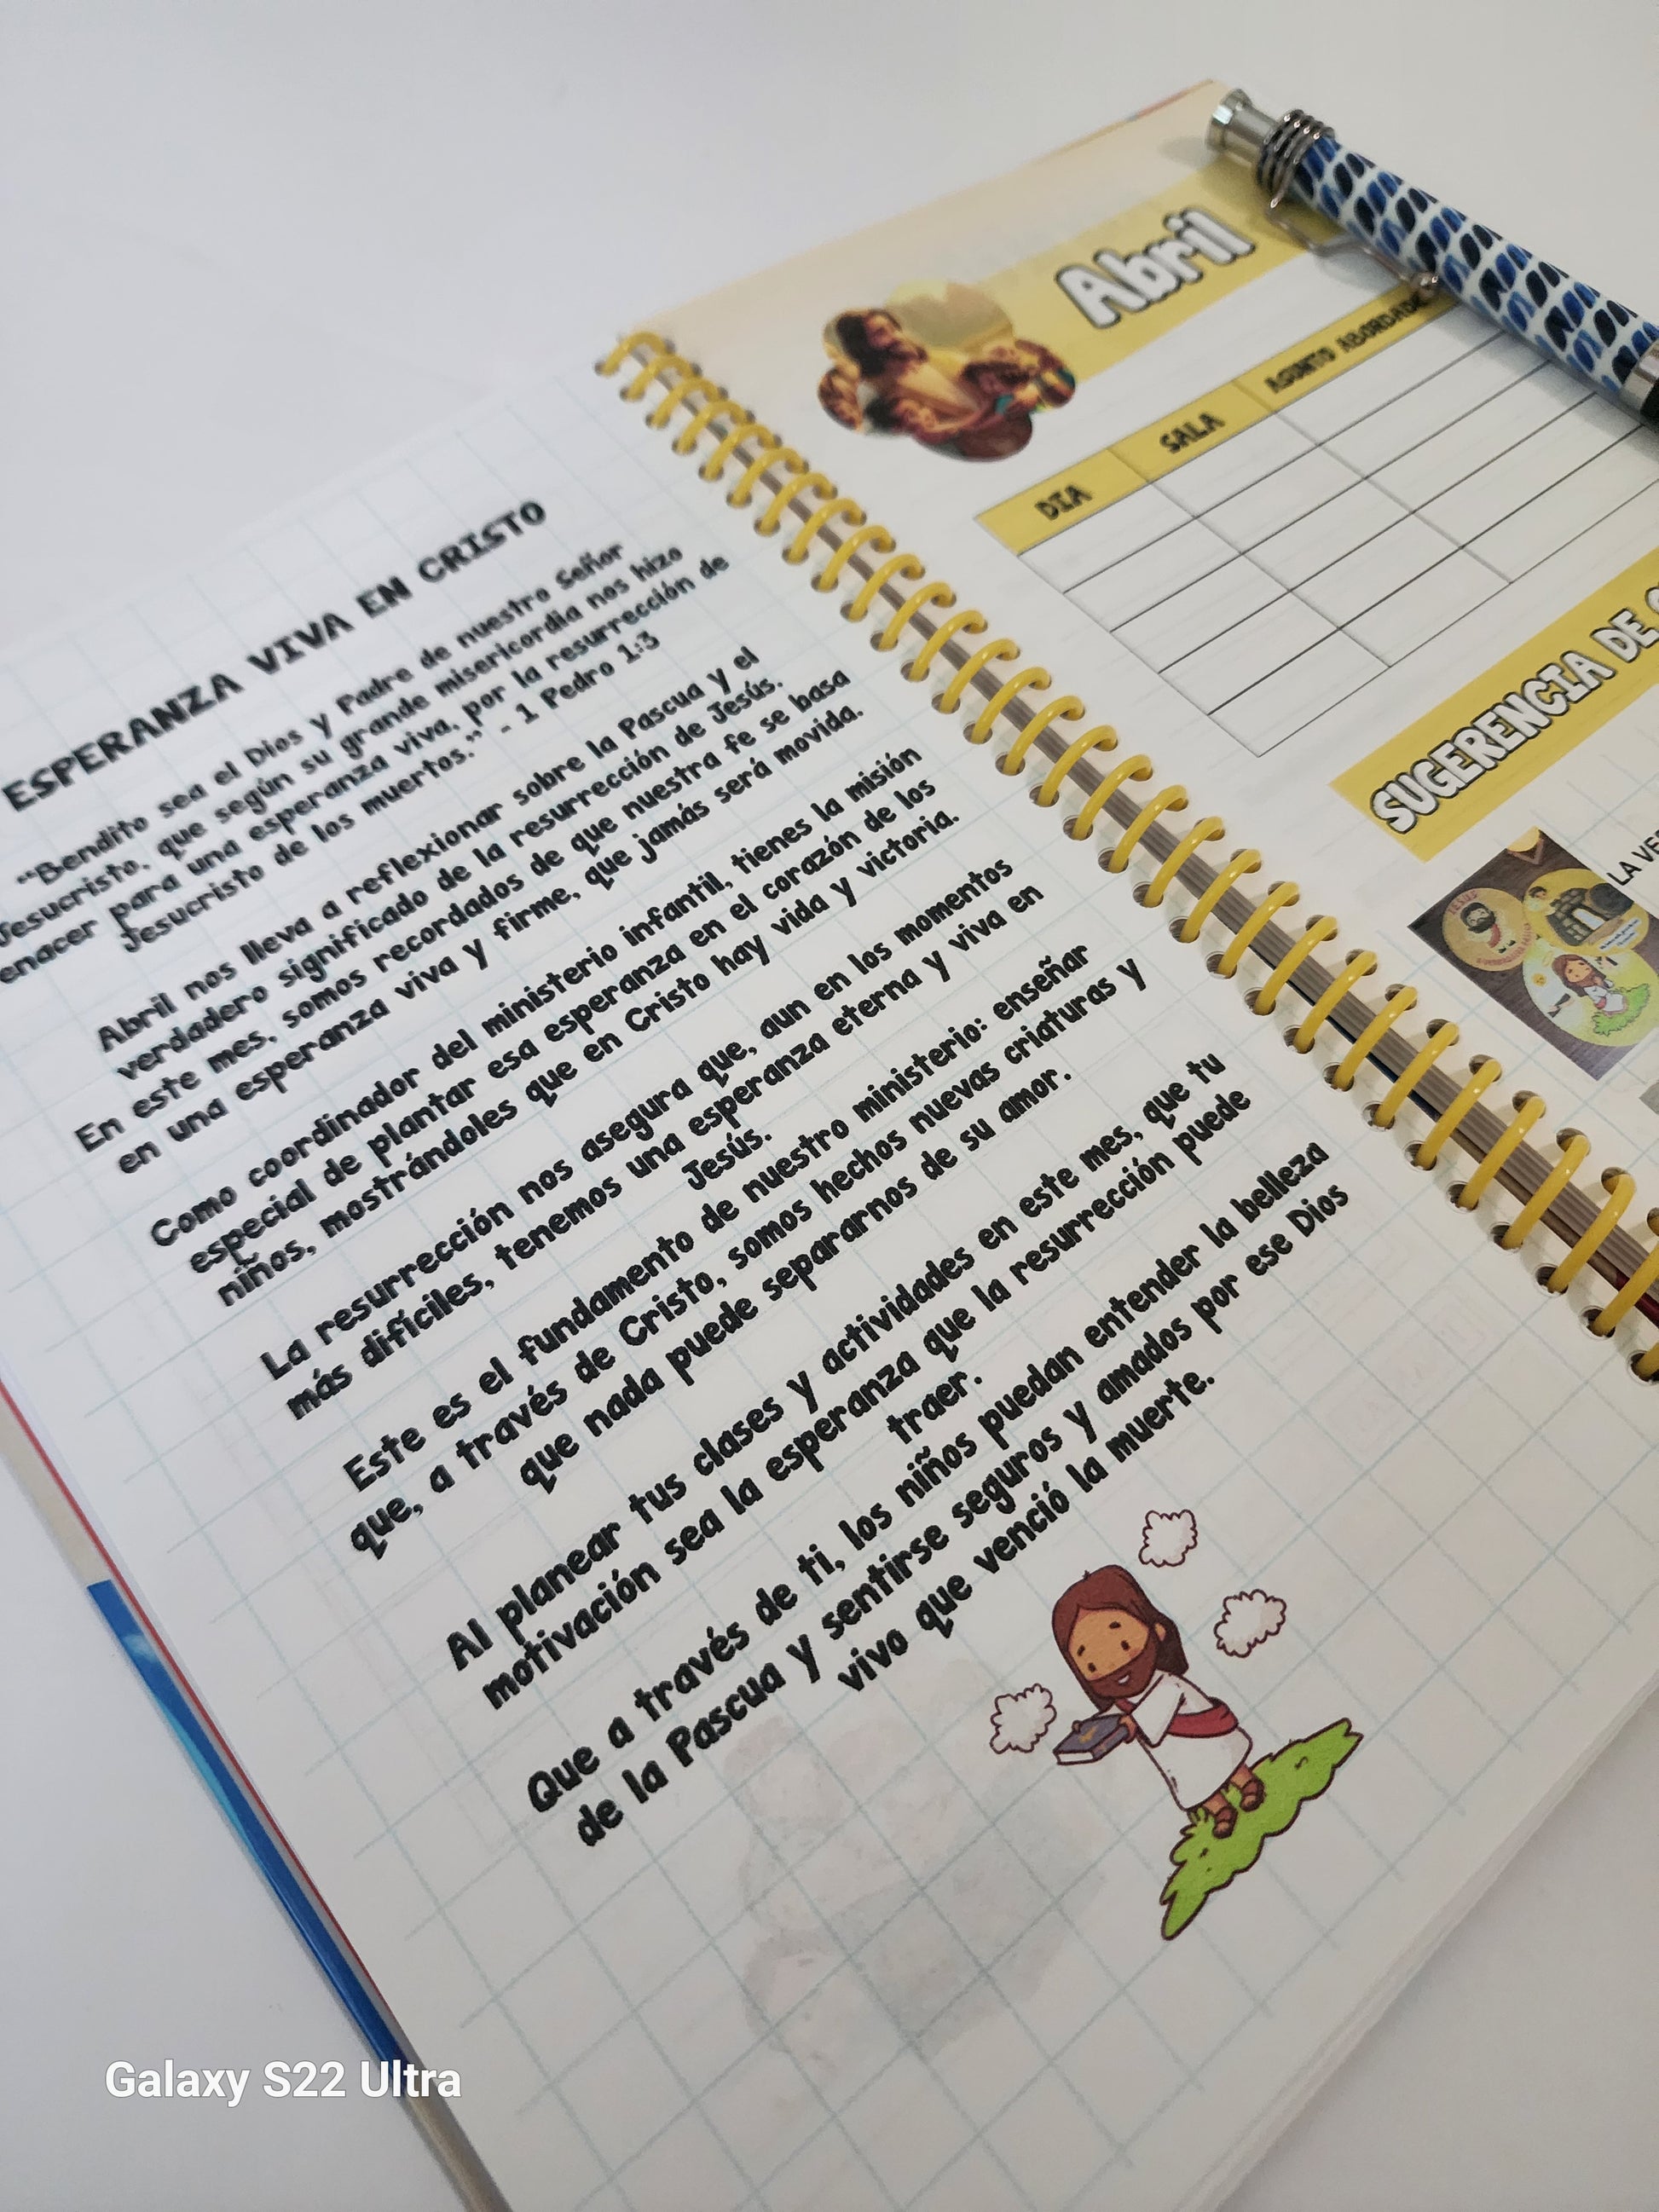 ESPERANZA VIVA EN CRISTO
"Bendito sea el Dios y Padre de nuestro Señor
Jesucristo, que según su grande misericordia nos hizo
enacer para una esperanza viva, por la resurrección de
Jesucristo de los muertos." - 1 Pedro 1:3
Abril nos lleva a reflexionar sobre la Pascua y el
verdadero significado de la resurrección de Jesús.
En este mes, somos recordados de que nuestra fe se basa
en una esperanza viva y firme, que jamás será movida.
Como coordinador del ministerio infantil, tienes la misión
especial de plantar esa esperanza en el corazón de los
niños, mostrándoles que en Cristo hay vida y victoria.
La resurrección nos asegura que, aun en los momentos
más difíciles, tenemos una esperanza eterna y viva en
Jesús.
Este es el fundamento de nuestro ministerio: enseñar
que, a través de Cristo, somos hechos nuevas criaturas y
que nada puede separarnos de su amor.
Al planear tus clases y actividades en este mes, que tu
motivación sea la esperanza que la resurrección puede
traer.
Que a través de ti, los niños puedan entender la belleza
de la Pascua y sentirse seguros y amados por ese Dios
vivo que venció la muerte.
Abril
DIA SALA ASUNTO ABORDADO
SUGERENCIA DE
LA VE
JESÚS
Galaxy S22 Ultra